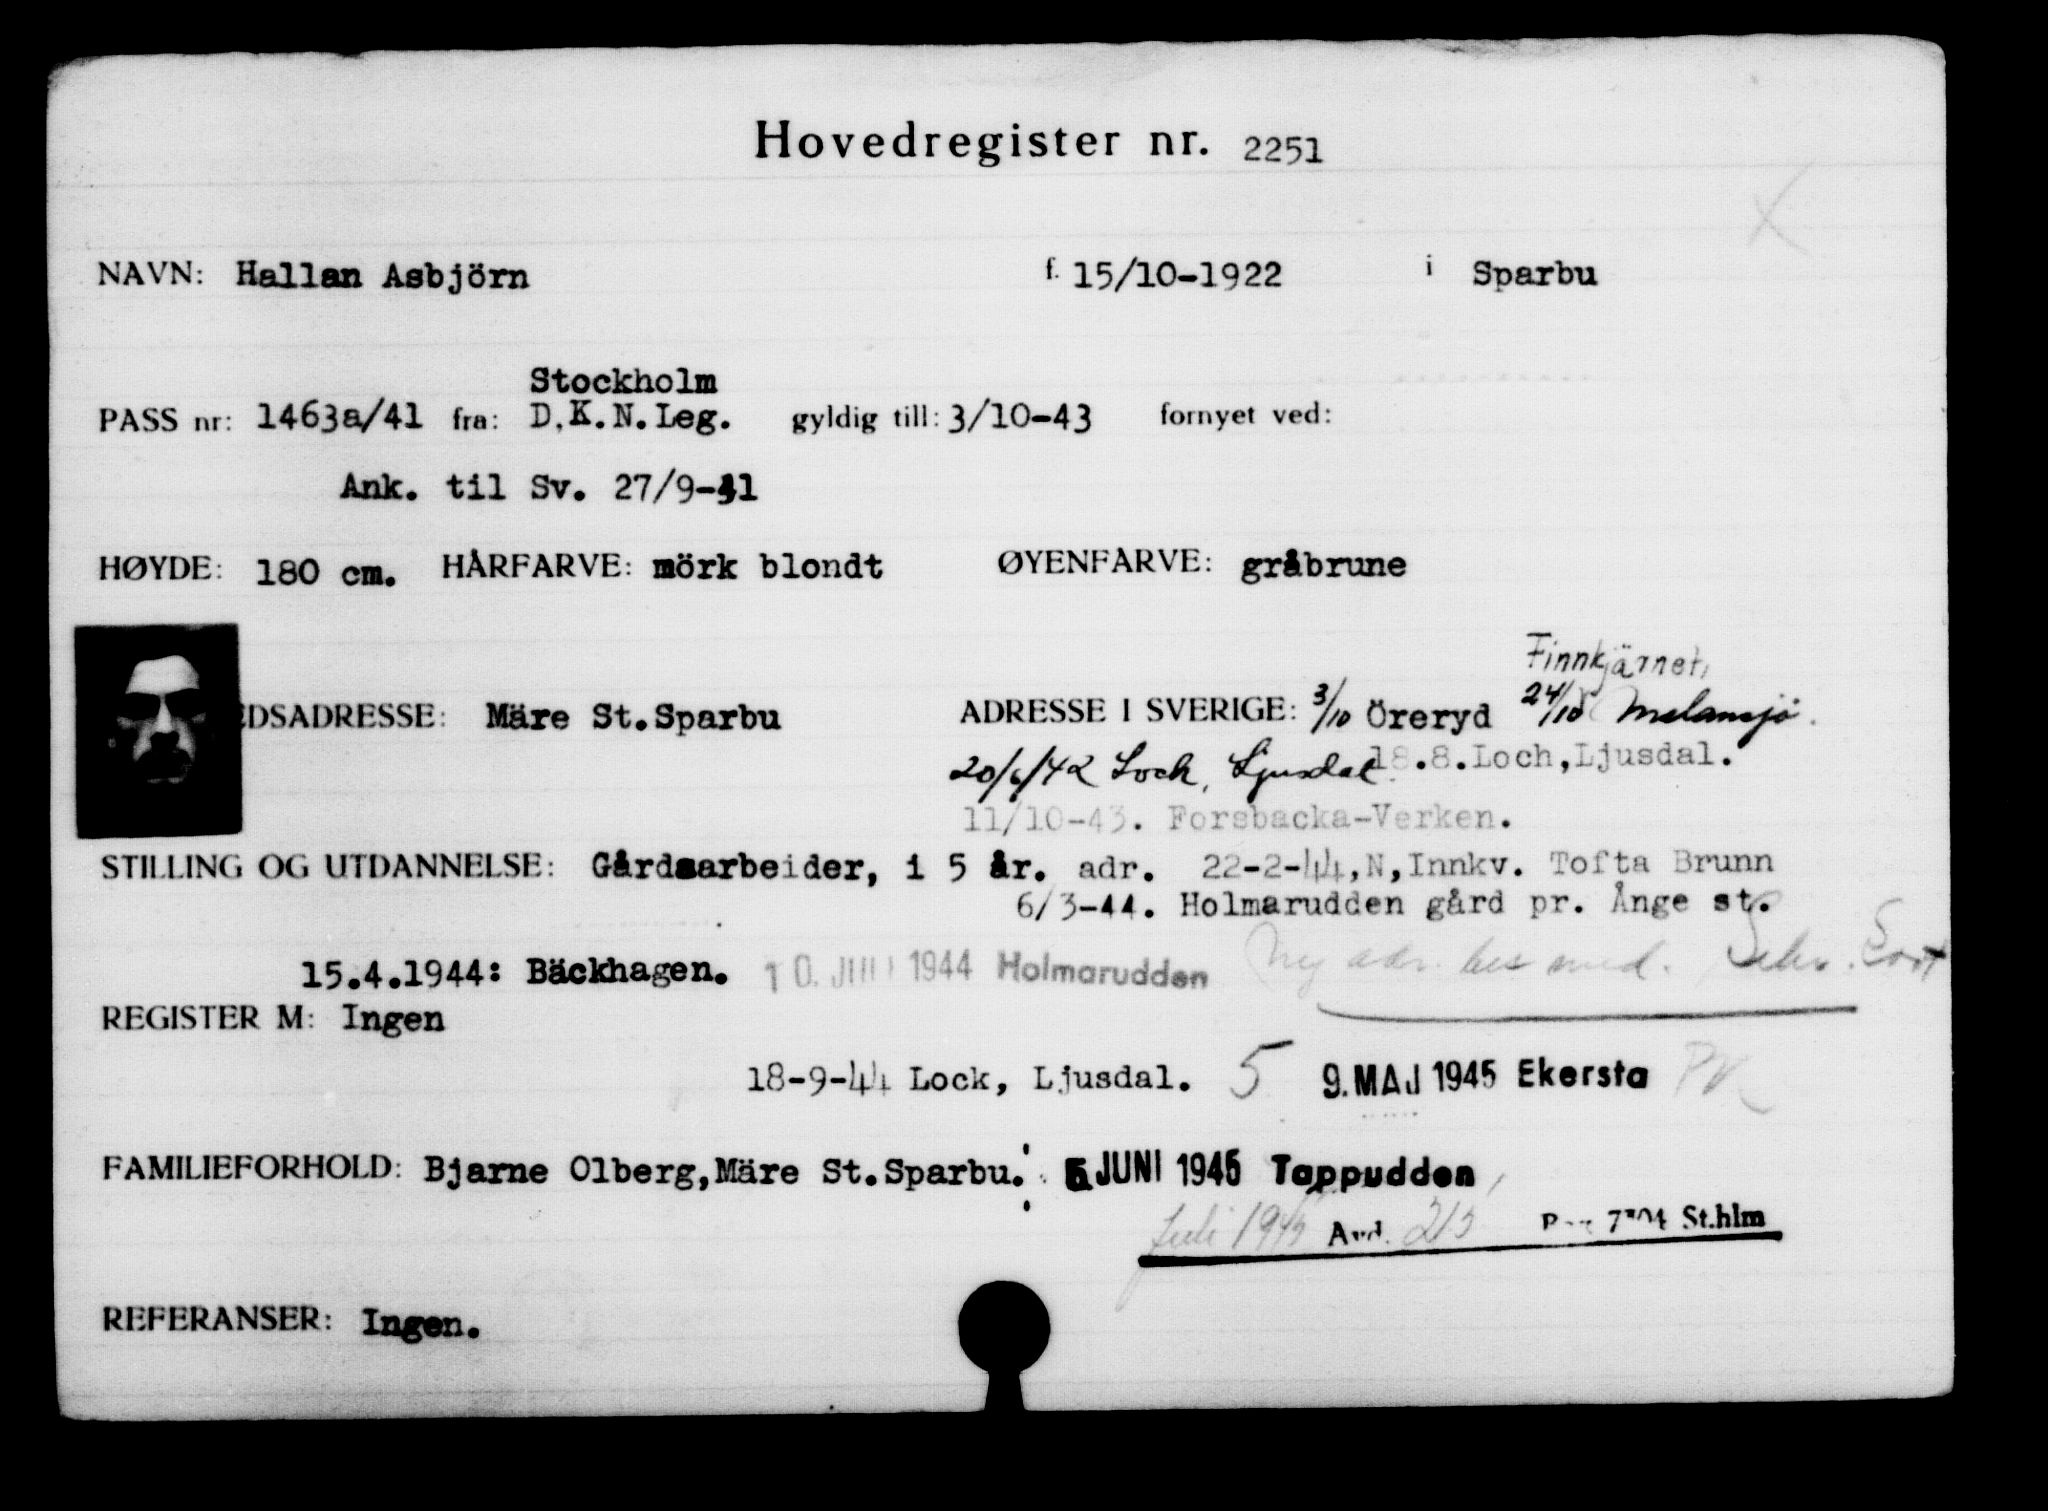 Hovedregister nr. 2251
NAVN: Hallan Asbjörn f. 15/10-1922 i Sparbu
Stockholm
PASS nr: 1463a/41 fra: D.K.N.Leg. gyldig till: 3/10-43 fornyet ved:
Ank. til Sv. 27/9-41
HØYDE: 180 cm. HÅRFARVE: mörk blondt ØYENFARVE: gråbrune
Finnkjärnet,
EDSADRESSE: Märe St.Sparbu ADRESSE I SVERIGE: 3/10 Öreryd 24/10 Melansjö.
20/6/42 Lock, Ljusdal. 18.8.Loch,Ljusdal.
11/10-43. Forsbacka-Verken.
STILLING OG UTDANNELSE: Gårdsarbeider, i 5 år. adr. 22-2-44,N,Innkv. Tofta Brunn
6/3-44. Holmarudden gård pr. Ånge st.
15.4.1944: Bäckhagen. 10. JULI 1944 Holmarudden Ny adr. bes med.
REGISTER M: Ingen
18-9-44 Lock, Ljusdal. 5 9. MAJ 1945 Ekersta
FAMILIEFORHOLD: Bjarne Olberg,Märe St.Sparbu. 5 JUNI 1945 Tappudden
Juli 1945 Avd. St.hlm
REFERANSER: Ingen.